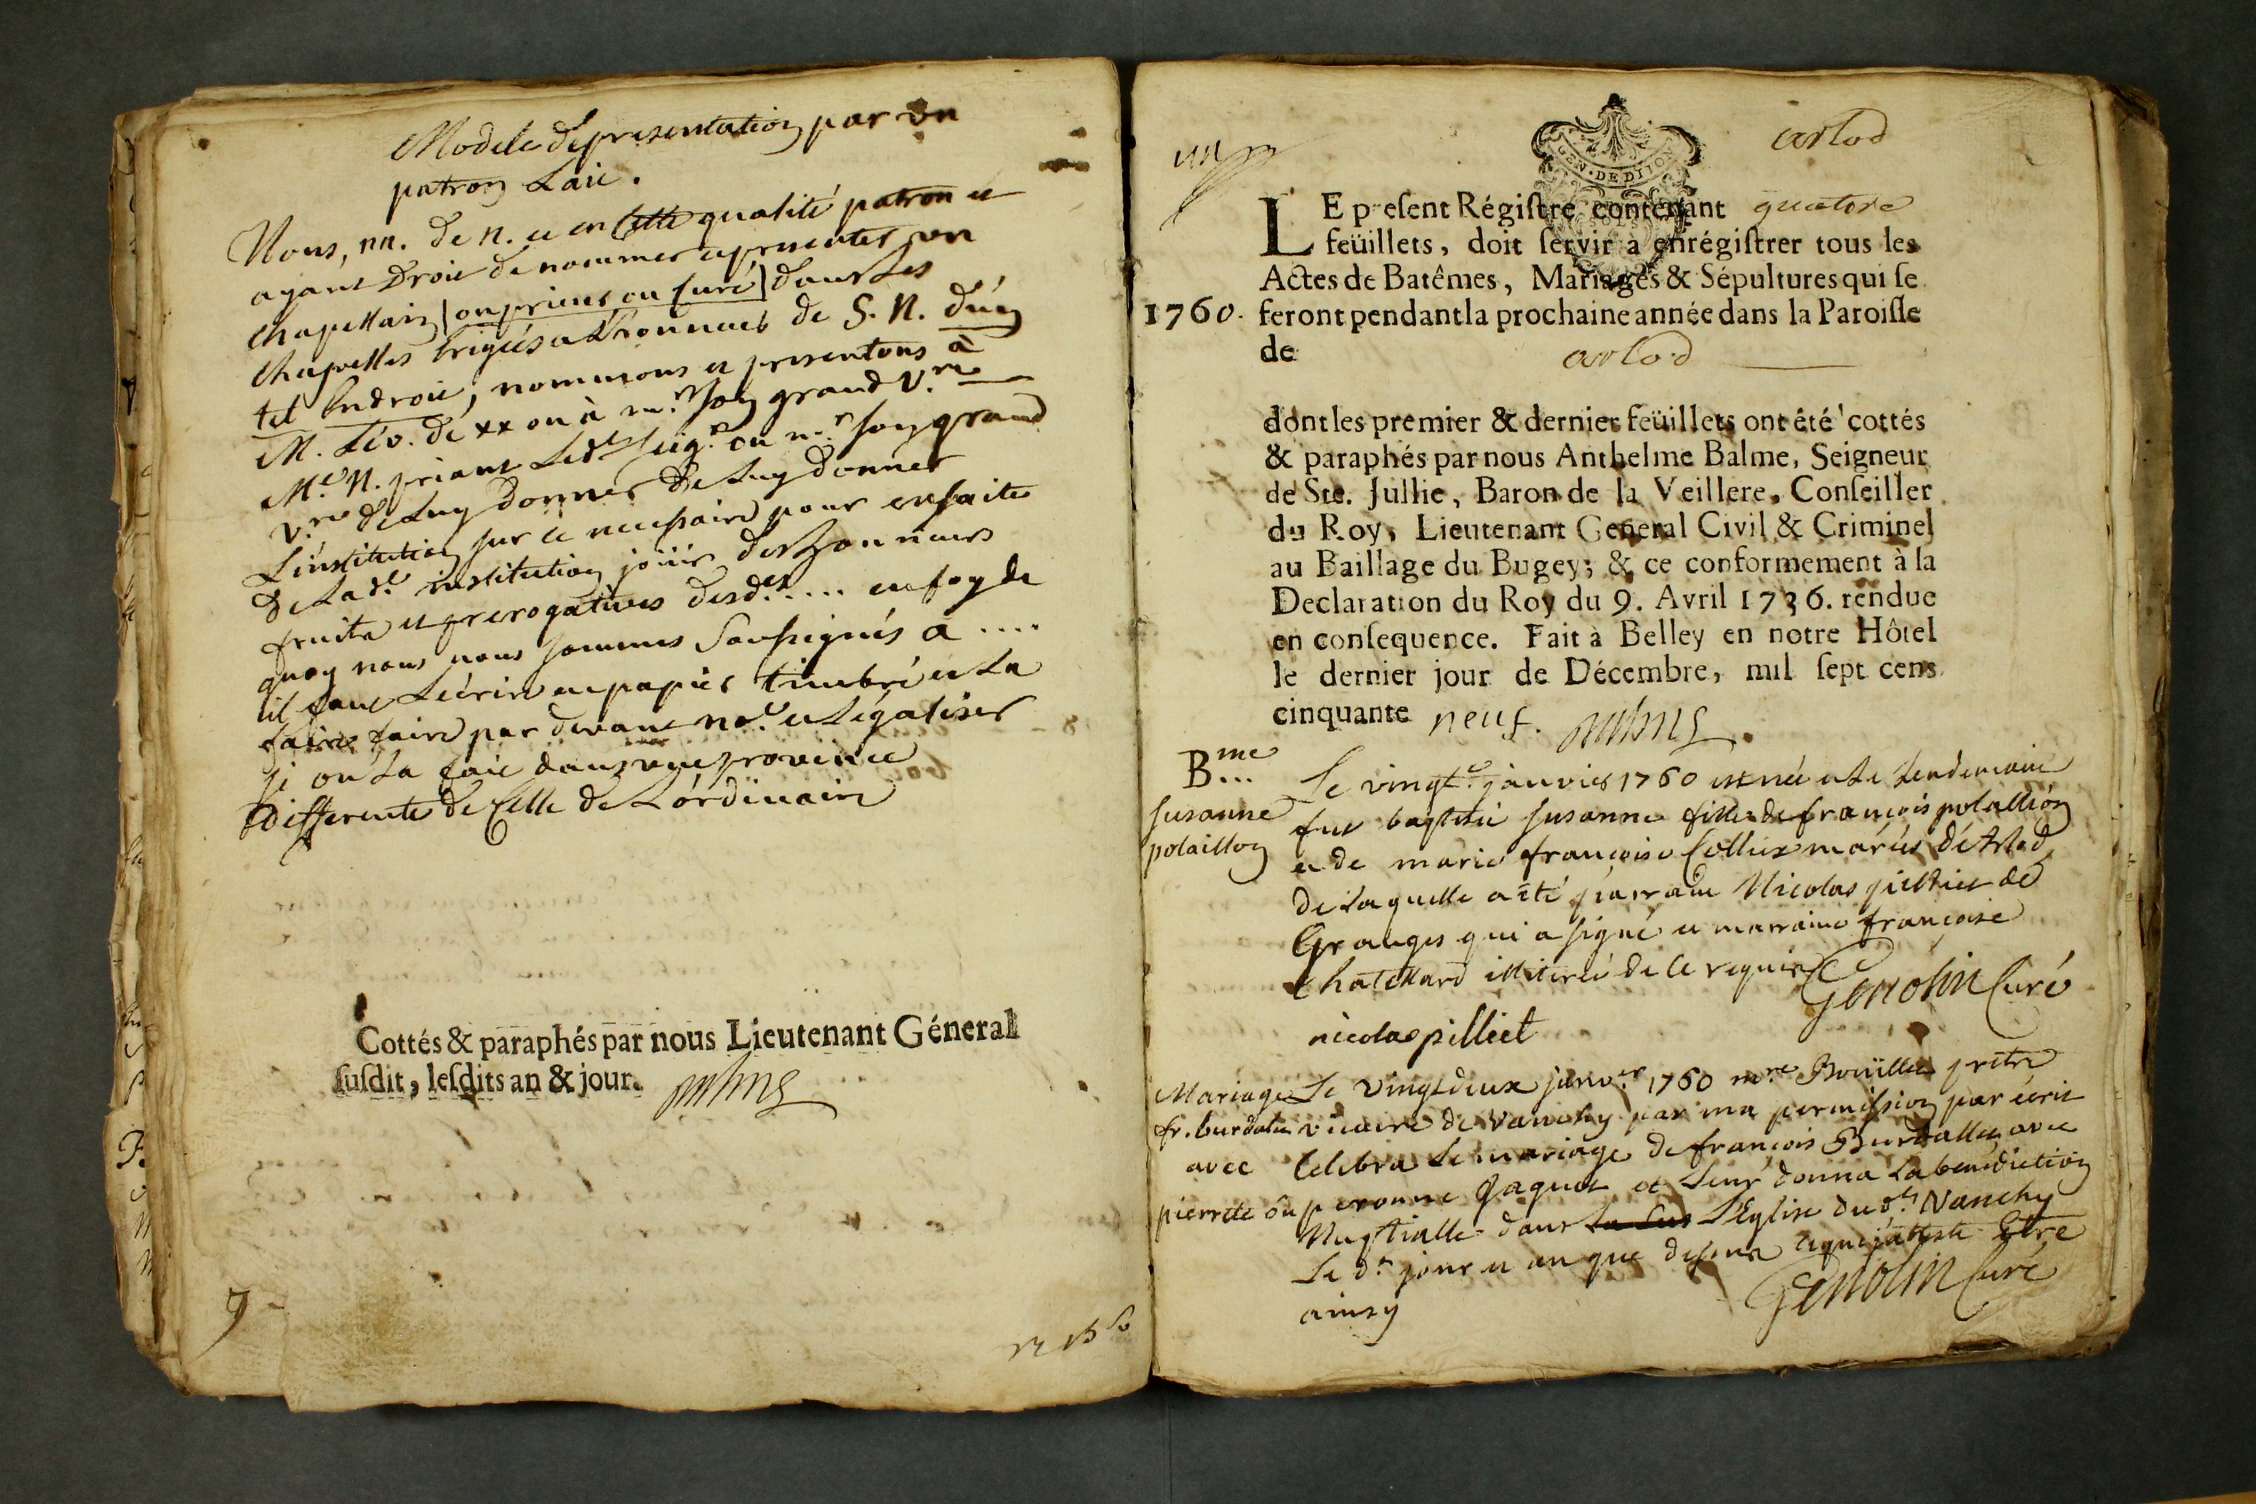 Modele de presentation par un
patron Laic.
Nous, nn. de N. et en cette qualité patron et
ayant Droit de nommer et presenter un
Chapellain | ou prieur ou Curé | dans les
Chapelles Erigées a L'honneur de S. N. d'un
tel Endroit, nommons et presentons à
M. Lév. de xx ou à m.r son grand V.re
M.e N. priant Led.t Seig.r ou m.r son grand
v.re de Luy donner de Luy donner
L'institution sur ce necessaire pour ensuite
de Lad.e institution joüir des honneurs
fruits et prerogatives desd.es .... en foy de
quoy nous nous sommes Soussignés a ....
il faut L'écrire en papier timbré et La
faire faire par devant no.re et Légaliser
si on La fait dans une province
differente de Celle de L'ordinaire
Cottés & paraphés par nous Lieutenant Géneral
susdit, lesdits an & jour.
9
un
GEN. DE DIJON
arlod
LE present Régistre contenant quatorze
feüillets, doit servir à enrégistrer tous les
Actes de Batêmes, Mariages & Sépultures qui se
1760. feront pendant la prochaine année dans la Paroisse
de arlod
dont les premier & dernier feüillets ont été cottés
& paraphés par nous Anthelme Balme, Seigneur
de Ste. Jullie, Baron de la Veillere, Conseiller
du Roy, Lieutenant General Civil & Criminel
au Baillage du Bugey; & ce conformement à la
Declaration du Roy du 9. Avril 1736. rendue
en consequence. Fait à Belley en notre Hôtel
le dernier jour de Décembre, mil sept cens
cinquante neuf.
B...me
Susanne
polaillon
Le vingt.e janvier 1760 est née et Le Lendemain
fut baptisée Susanne fille de françois polallion
et de marie françoise Collux mariés d'Arlod
de Laquelle a été parrain Nicolas pilliet de
Granges qui a signé et marraine françoise
Chatellard illitérée de ce requise Genolin Curé
nicolas pilliet
Mariage
fr. burdalet
avec
pierrete ou
Le vingt deux janv.er 1760 m.re Bouillet prêtre
vicaire de vanchy par ma permission par écrit
Célébra Le mariage de françois Burdallet avec
peronne Jaquet et Leur donna La benediction
Nuptialle dans L'Eglise dud.t Vanchy
Le d.t jour et an que dessus ce que j'atteste Etre
ainsy Genolin Curé